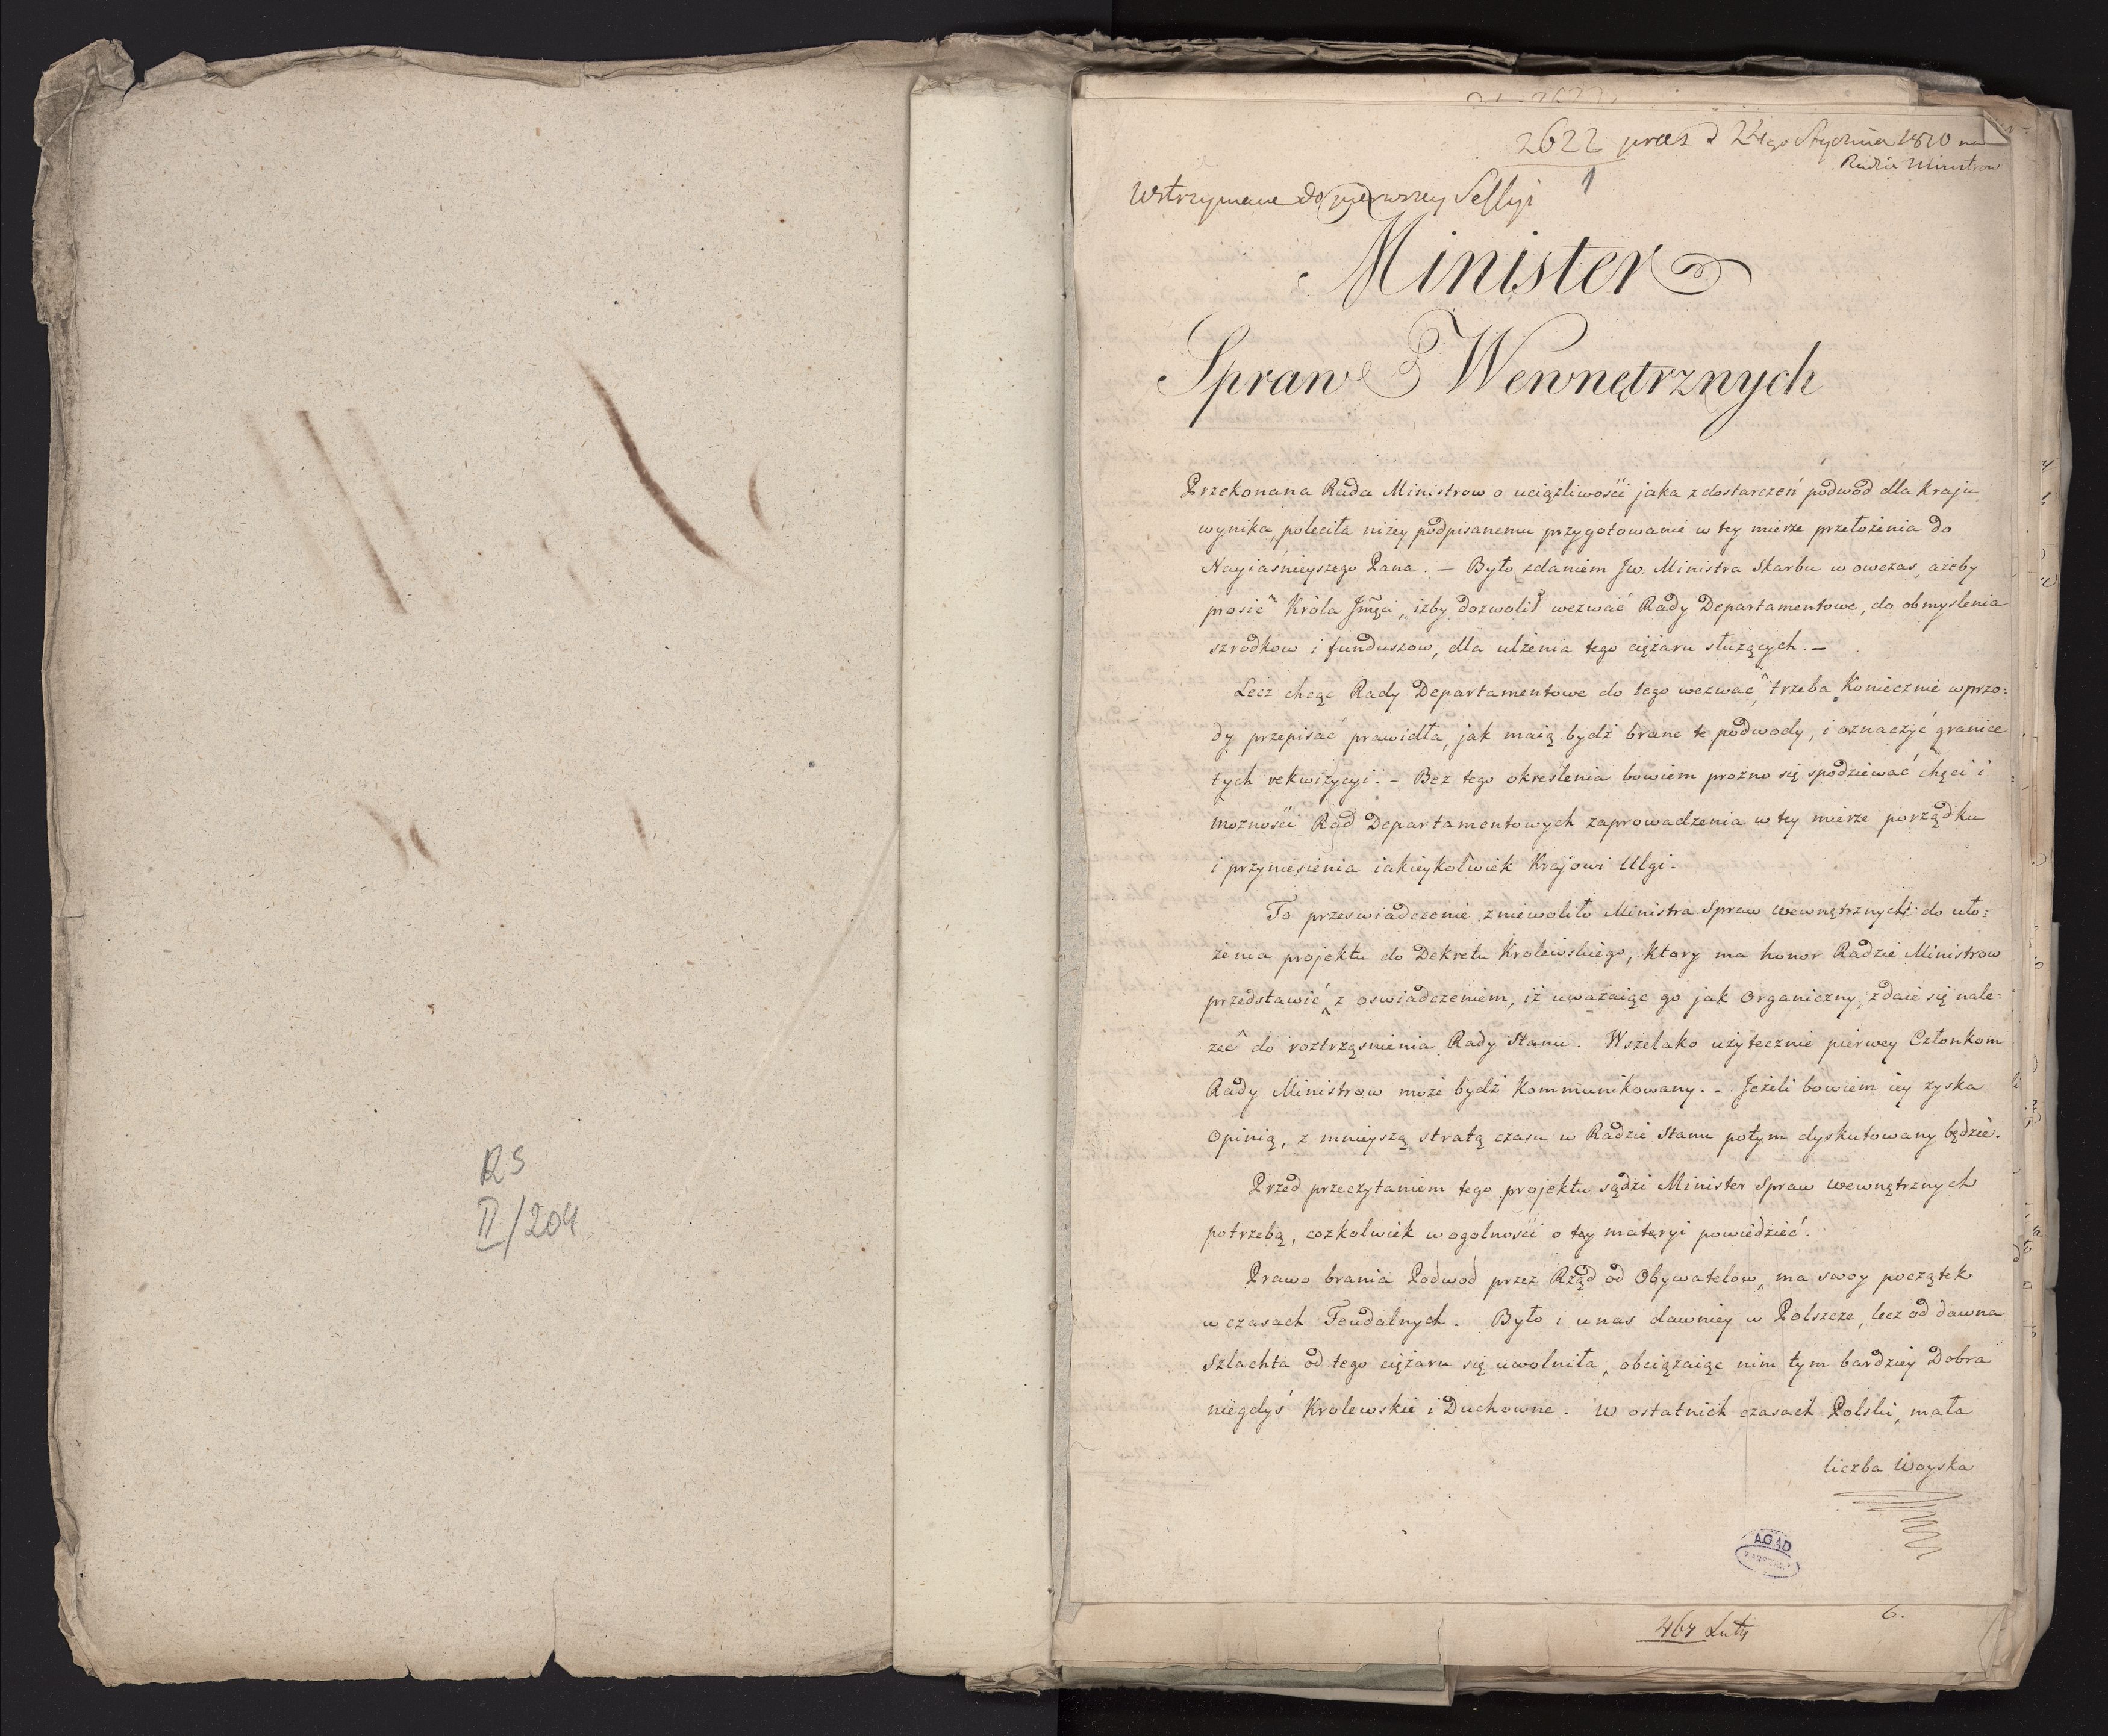 RS
II/204
2622 praes d 24go Stycznia 1810 na
Radzie Ministrow
1
Wstrzymane do pierwszey Sessyi
Minister
Spraw Wewnętrznych
Przekonana Rada Ministrow o uciążliwości jaka z dostarczeń podwod dla kraju
wynika, poleciła niżey podpisanemu przygotowanie w tey mierze przełożenia do
Nayiaśnieyszego Pana. – Było zdaniem Jw. Ministra Skarbu w owczas, ażeby
prosić Króla Jmści, iżby dozwolił wezwać Rady Departamentowe, do obmyslenia
szrodkow i funduszow, dla ulżenia tego ciężaru służących. –
Lecz chcąc Rady Departamentowe do tego wezwać, trzeba koniecznie wprzo:
dy przepisać prawidła, jak maią bydź brane te podwody, i oznaczyć granice
tych rekwizycyi. – Bez tego określenia bowiem prożno się spodziewać chęci i
możności Rad Departamentowych zaprowadzenia w tey mierze porządku
i przyniesienia iakieykolwiek Krajowi Ulgi.
To przeswiadczenie zniewoliło Ministra Spraw Wewnętrznych do uło:
żenia projektu do Dekretu Krolewskiego, ktory ma honor Radzie Ministrow
przedstawić z oswiadczeniem, iż uważaiąc go jak Organiczny, zdaie się nale:
żeć do roztrząsnienia Rady Stanu. Wszelako użytecznie pierwey Członkom
Rady Ministrow może bydź kommunikowany. – Jeżeli bowiem iey zyska
Opinią, z mnieyszą stratą czasu w Radzie Stanu potym dyskutowany będzie.
Przed przeczytaniem tego projektu sądzi Minister Spraw Wewnętrznych
potrzebą, cożkolwiek w ogolności o tey materyi powiedzieć.
Prawo brania Podwod przez Rząd od Obywatelow, ma swoy początek
w czasach Feudalnych. Było i u nas dawniey w Polszcze, lecz od dawna
Szlachta od tego ciężaru się uwolniła, obciążaiąc nim tym bardziey Dobra
niegdyś Krolewskie i Duchowne. W ostatnich czasach Polski, mała
liczba Woyska
AGAD
6.
464 Luty